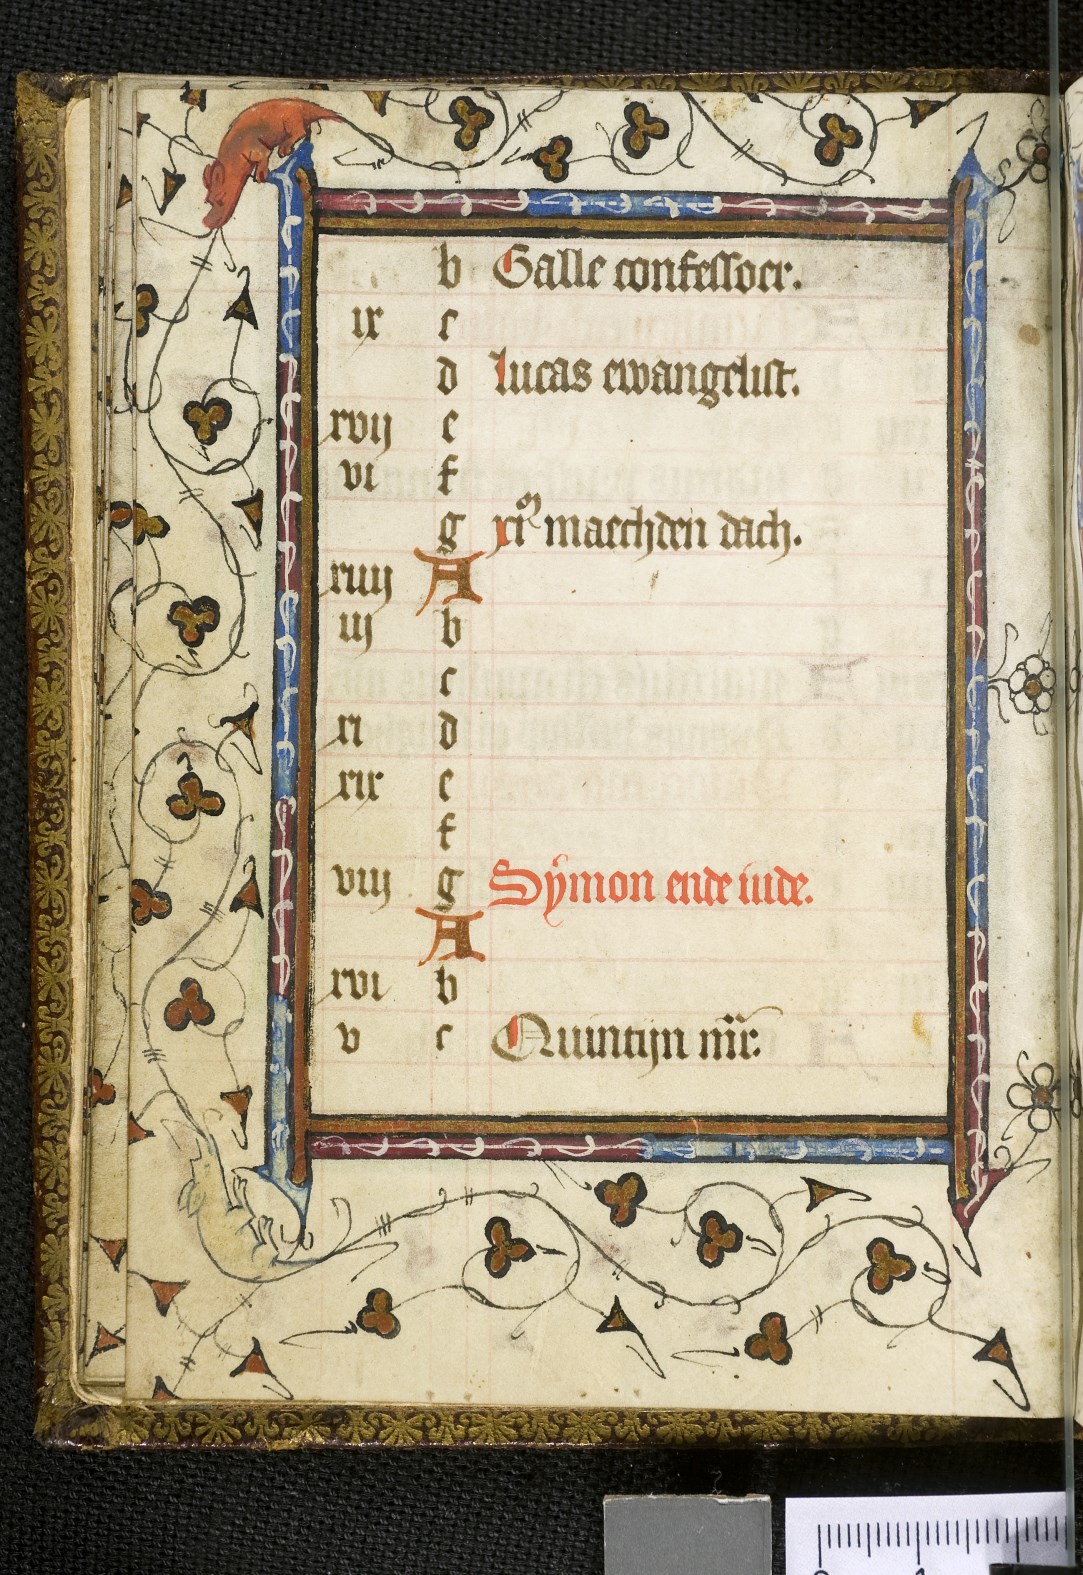 b Galle confessoer.
ix c
d lucas ewangelist.
xvij e
vi f
g xi^m maechden dach.
xiiij A
iij b
c
xi d
xix e
f
viij g Symon ende iude.
A
xvi b
v c Quintijn mr̃.